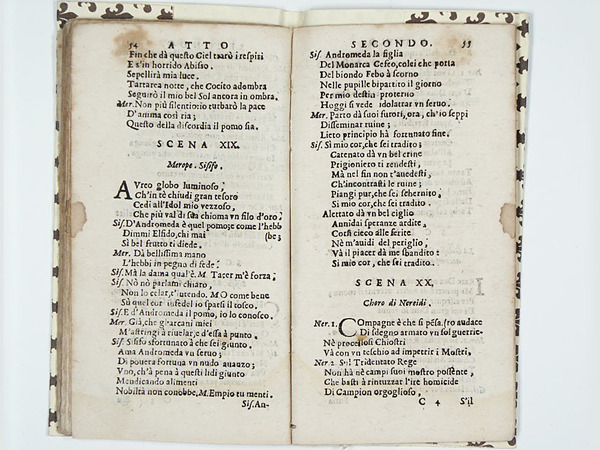 54 ATTO
Fin che dà questo Ciel trarò i respiri
E s'in horrido Abisso.
Sepellirà mia luce.
Tartarea notte, che Cocito adombra
Seguirò il mio bel Sol ancora in ombra.
Mer. Non più silentio io turbarò la pace
D'anima così ria;
Questo della discordia il pomo sia.
SCENA XIX.
Merope. Sisifo.
AVreo globo luminoso,
Ch'in tè chiudi gran tesoro
Cedi all'Idol mio vezzoso,
Che più val di sua chioma vn filo d'oro.
Sis. D'Andromeda è quel pomo; e come l'hebb
Dimmi Elsido, chi mai (be;
Sì bel frutto ti diede.
Mer. Dà bellissima mano
L'hebbi in pegno di fede.
Sis. Mà la dama qual'è. M. Tacer m'è forza,
Sis. Nò nò parlami chiaro,
Non lo celar, t'intendo. M O come bene
Sù quel cor infedel io sparsi il tosco.
Sis. E d'Andromeda il pomo, io lo conosco.
Mer. Già, che giurarci miei
M'astringi à riuelar, e d'essa à punto.
Sis. Sisifo sfortunato à che sei giunto.
Ama Andromeda vn seruo;
Di pouera fortuna vn nudo auanzo;
Vno, ch'à pena à questi lidi giunto
Mendicando alimenti
Nobiltà non conobbe. M. Empio tu menti.
Sis. An-
SECONDO. 55
Sis. Andromeda la figlia
Del Monarca Cefeo, colei che porta
Del biondo Febo à scorno
Nelle pupille bipartito il giorno
Per mio destin proteruo
Hoggi si vede idolatrar vn seruo.
Mer. Parto dà suoi furori, ora, ch'io seppi
Disseminar ruine;
Lieto principio hà fortunato fine.
Sis. Sì mio cor, che sei tradito;
Catenato dà vn bel crine
Prigioniero ti rendesti,
Mà nel fin non t'auedesti,
Ch'incontrasti le ruine;
Piangi pur, che sei schernito,
Si mio cor, che sei tradito.
Alettato dà vn bel ciglio
Annidai speranze ardite,
Corsi cieco alle ferite
Nè m'auidi del periglio,
Và il piacer dà me sbandito:
Si mio cor, che sei tradito.
SCENA XX.
Choro di Nereidi.
Ner. 1. COmpagne è che si pẽsa, fro audace
Di sdegno armato vn sol guerrie-
Nè procellosi Chiostri
Và con vn teschio ad impetrir i Mostri,
Ner. 2. Sul Tridentato Rege
Non hà nè campi suoi mostro possente,
Che basti à rintuzzar l'ire homicide
Di Campion orgoglioso,
C 4 S'il